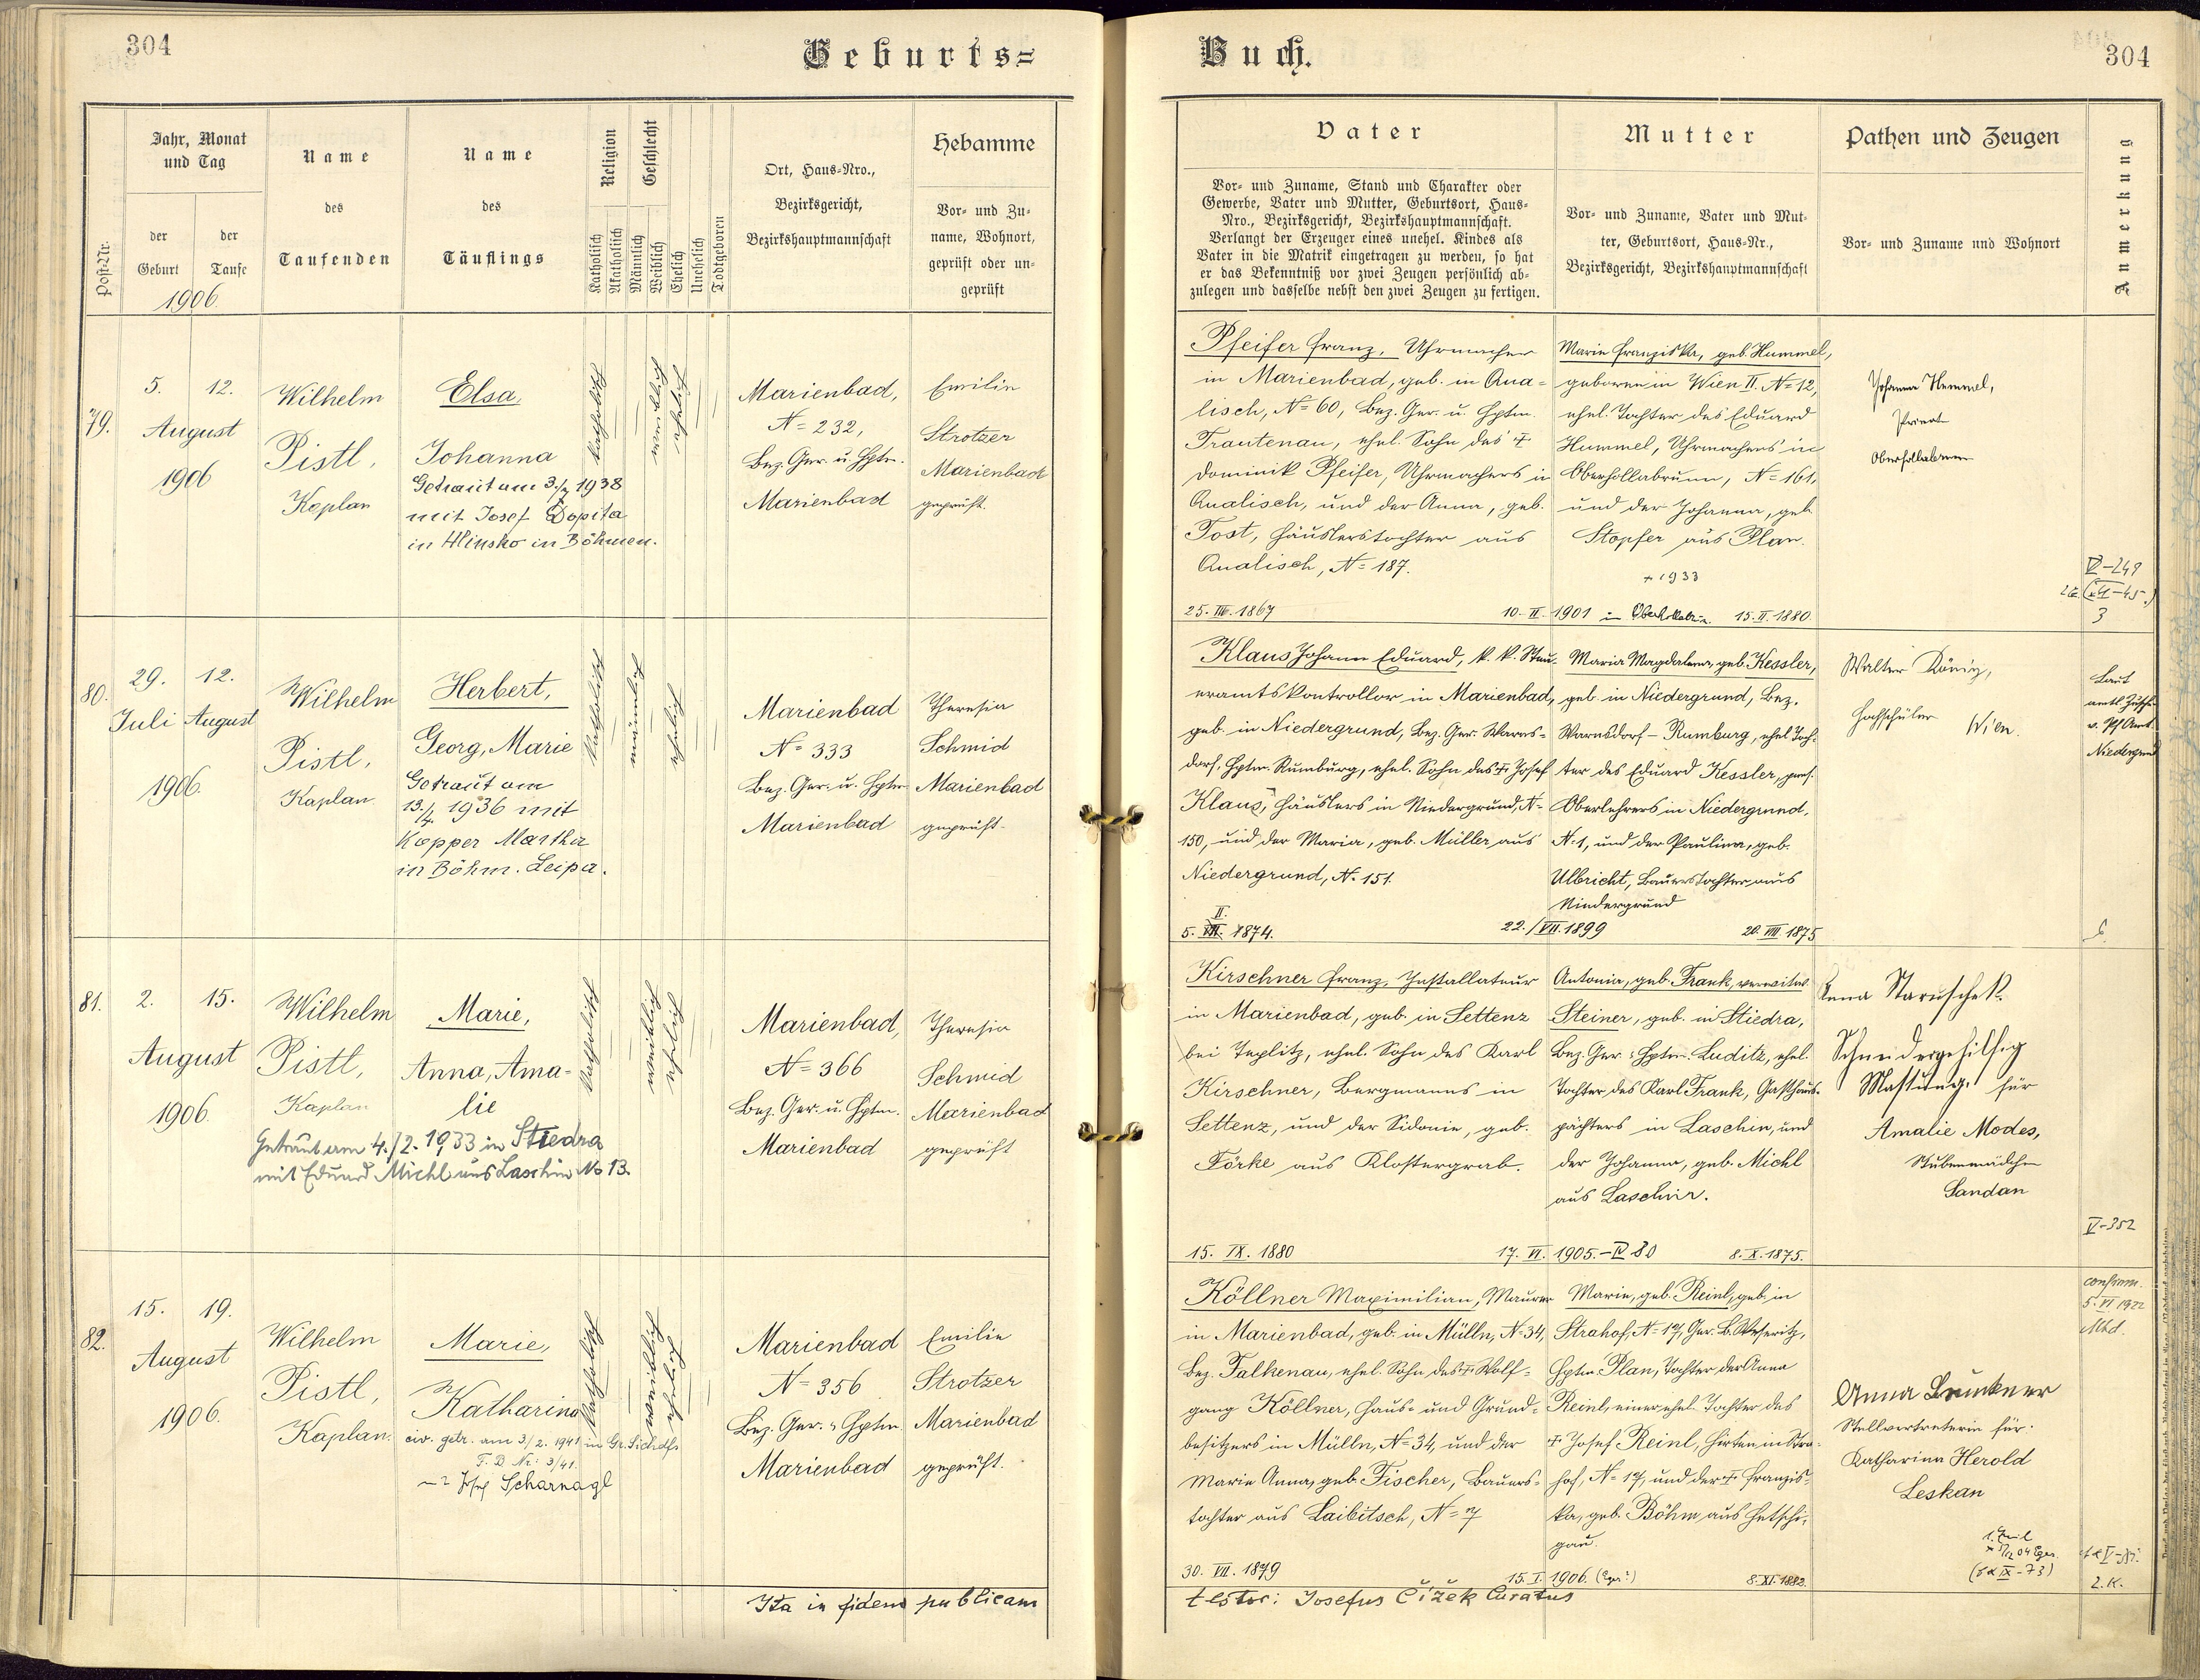 304
Geburts=
Jahr, Monat
und Tag
Post-Nr.
der
Geburt
der
Taufe
1906.
Name
des
Taufenden
Name
des
Täuflings
Religion
Katholisch
Akatholisch
Geschlecht
Männlich
Weiblich
Ehelich
Unehelich
Todtgeboren
Ort, Haus-Nro.,
Bezirksgericht,
Bezirkshauptmannschaft
Hebamme
Vor- und Zu-
name, Wohnort,
geprüft oder un-
geprüft
79.
5. 12.
August
1906
Wilhelm
Pistl,
Kaplan
Elsa,
Johanna
Getraut am 3./7 1938
mit Josef Dopita
in Hlinsko in Böhmen.
katholisch
weiblich
ehelich
Marienbad,
N= 232,
Bez. Ger. u. Hptm.
Marienbad
Emilie
Strotzer
Marienbad
geprüft.
80.
29. 12.
Juli August
1906.
Wilhelm
Pistl,
Kaplan
Herbert,
Georg, Marie
Getraut am
13./4. 1936 mit
Kopper Martha
in Böhm. Leipa.
katholisch
männlich
ehelich
Marienbad
N= 333
Bez. Ger. u. Hptm
Marienbad
Theresia
Schmid
Marienbad
geprüft.
81.
2. 15.
August
1906.
Wilhelm
Pistl,
Kaplan
Marie,
Anna, Ama-
lie
Getraut am 4./2. 1933 in Stiedra
mit Eduard Michl aus Laschin No 13.
katholisch
weiblich
ehelich
Marienbad,
N= 366
Bez. Ger. u. Hptm.
Marienbad
Theresia
Schmid
Marienbad
geprüft
82.
15. 19.
August
1906.
Wilhelm
Pistl,
Kaplan.
Marie,
Katharina
civ. getr. am 3/2. 1941 in Gr.
F. B Nr: 3/41.
Josef Scharnagl
katholisch
weiblich
ehelich
Marienbad
N= 356
Bez. Ger. u. Hptm
Marienbad
Emilie
Strotzer
Marienbad
geprüft.
Ita in fidem publicam
Buch.
304
Vater
Vor- und Zuname, Stand und Charakter oder
Gewerbe, Vater und Mutter, Geburtsort, Haus-
Nro., Bezirksgericht, Bezirkshauptmannschaft.
Verlangt der Erzeuger eines unehel. Kindes als
Vater in die Matrik eingetragen zu werden, so hat
er das Bekenntniß vor zwei Zeugen persönlich ab-
zulegen und dasselbe nebst den zwei Zeugen zu fertigen.
Mutter
Vor- und Zuname, Vater und Mut-
ter, Geburtsort, Haus-Nr.,
Bezirksgericht, Bezirkshauptmannschaft
Pathen und Zeugen
Vor- und Zuname und Wohnort
Anmerkung
Pfeifer Franz, Uhrmacher
in Marienbad, geb. in Qua-
lisch, N= 60, Bez. Ger. u. Hptm.
Trautenau, ehel. Sohn des †
Dominik Pfeifer, Uhrmachers in
Qualisch, und der Anna, geb.
Tost, Häuslerstochter aus
Qualisch, N= 187.
25. III. 1867
10. II. 1901 in
15. II. 1880.
Marie Franziska, geb. Hummel,
geboren in Wien II. N= 12,
ehel. Tochter des Eduard
Hummel, Uhrmachers in
Oberhollabrunn, N= 161,
und der Johanna, geb.
Stopfer aus Plan.
+ 1933
Johanna Hummel,
Private
Oberhollabrunn
3
Klaus Johann Eduard, k. k. Steu-
eramtskontrollor in Marienbad,
geb. in Niedergrund, Bez. Ger. Warns-
dorf, Hptm. Rumburg, ehel. Sohn des † Josef
Klaus, Häuslers in Niedergrund, N-
150, und der Maria, geb. Müller aus
Niedergrund, N. 151.
II.
5. VII. 1874.
22./VII. 1899
20. VIII. 1875
Maria Magdalena, geb. Kessler,
geb. in Niedergrund, Bez.
Warnsdorf - Rumburg, ehel. Toch-
ter des Eduard Kessler, pens.
Oberlehrers in Niedergrund,
N. 1, und der Paulina, geb.
Ulbricht, Bauerstochter aus
Niedergrund
Walter König,
Hochschüler Wien.
Laut
v. Pf. Amt.
Niedergrund
Kirschner Franz, Installateur
in Marienbad, geb. in Settenz
bei Teplitz, ehel. Sohn des Karl
Kirschner, Bergmanns in
Settenz, und der Sidonie, geb.
Förke aus Klostergrab.
15. IX. 1880
17. VI. 1905. - IV 80
8. X. 1875.
Antonia, geb. Frank, verwitw.
Steiner, geb. in Stiedra,
Bez. Ger. u. Hptm. Luditz, ehel.
Tochter des Karl Frank, Gasthaus-
pächters in Laschin, und
der Johanna, geb. Michl
aus Laschin.
Anna Staruschek.
Schneidergehilfig
für
Amalie Modes,
Stubenmädchen
Sandau
V-352
Köllner Maximilian, Maurer
in Marienbad, geb. in Mülln, N= 34,
Bez. Falkenau, ehel. Sohn des † Wolf-
gang Köllner, Haus- und Grund-
besitzers in Mülln, N= 34, und der
Marie Anna, geb. Fischer, Bauers-
tochter aus Laibitsch, N= 7
30. VII. 1879
15. I. 1906. (Eger?)
8. XI. 1882.
Marie, geb. Reinl, geb. in
Strahof, N= 17, Ger. B. Weseritz,
Hptm. Plan, Tochter der Anna
Reinl, einer ehel. Tochter des
† Josef Reinl, Hirten in Stra-
hof, N= 17, und der † Franzis-
ka, geb. Böhm aus Hetschi-
gau.
Anna Brunner
Stellvertreterin für:
Katharina Herold
Leskau
confirm.
5. VI 1922
Mbd.
2. K.
testor: Josefus Čížek Curatus